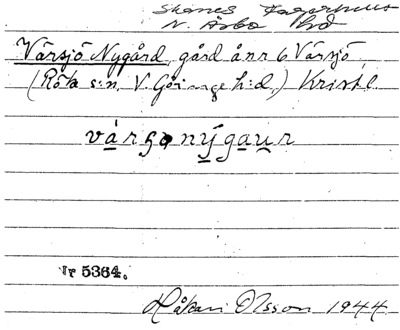 Skånes Fagerhult
N. Åsbo hd
Vårsjö Nygård, gård å nr 6 Vårsjö
(Röke s:n, V. Göinge h:d,) Krist. l.
Nr 5364.
Håkan Olsson 1944